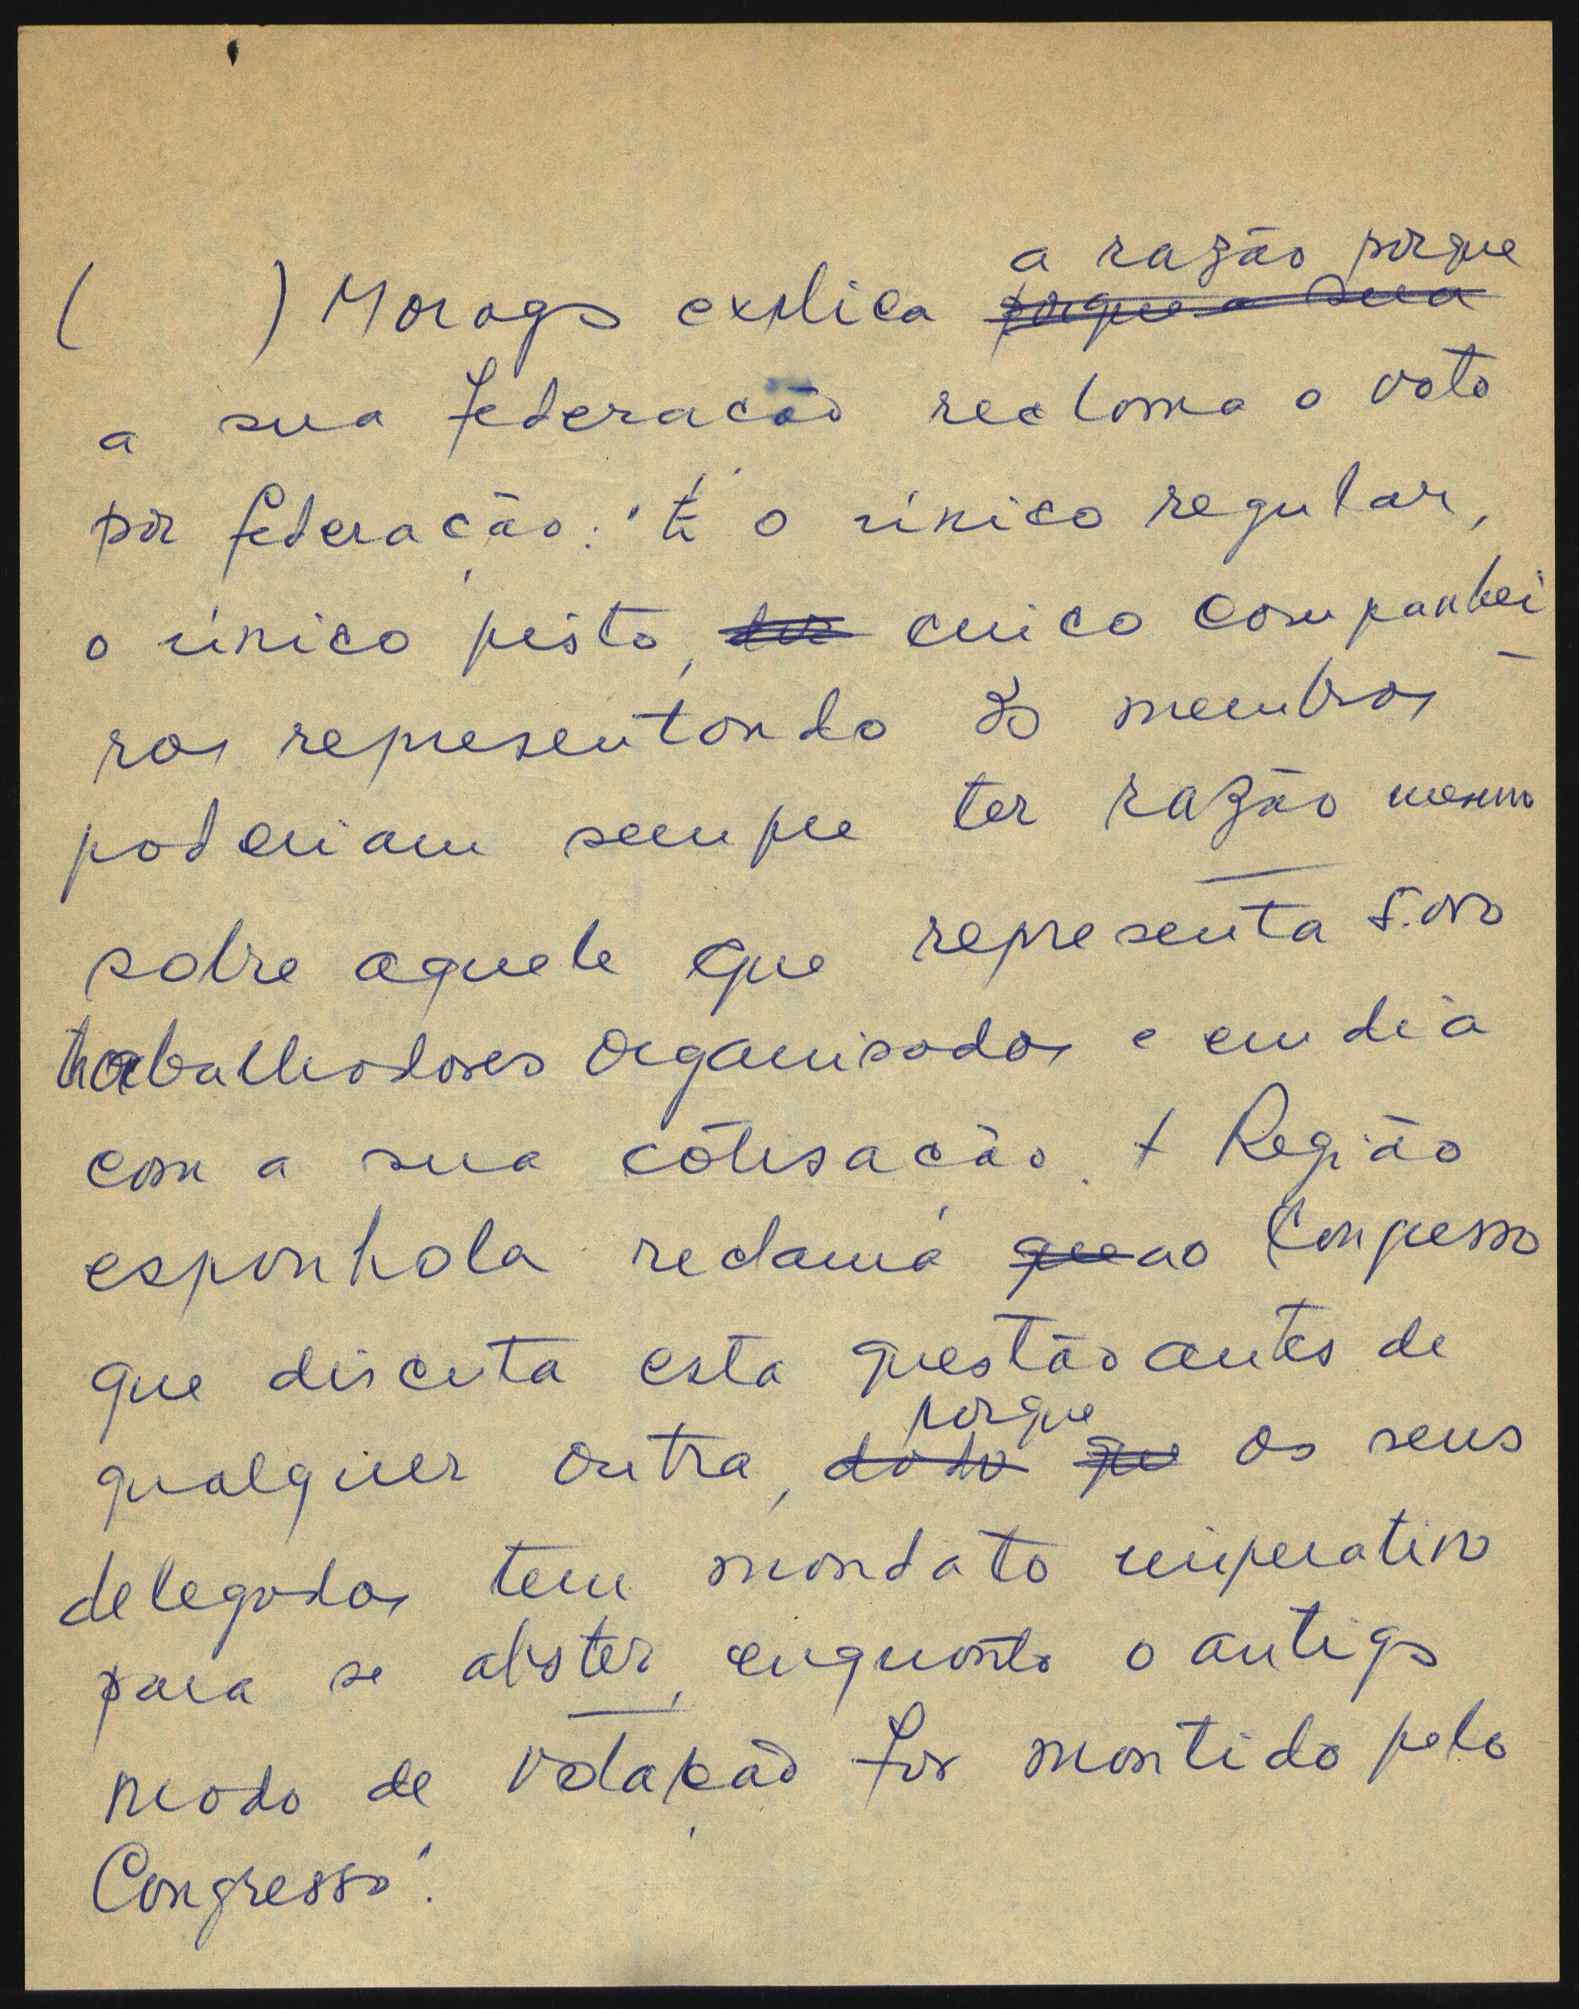 a razão porque
(          ) Morago explica porque a sua
a sua federacão reclama o voto
por federação: "É o único regular,
o único justo, cinco companhei-
ros representando 30 membros
poderiam sempre ter razão mesmo
sobre aquele que representa 5.000
trabalhadores organisados e em dia
com a sua cotisação. A Região
espanhola reclama que ao Congresso
que discuta esta questão antes de
porque
qualquer outra, dado que os seus
delegados tem mandato imperativo
para se abster, enquanto o antigo
modo de votação for mantido pelo
Congresso".